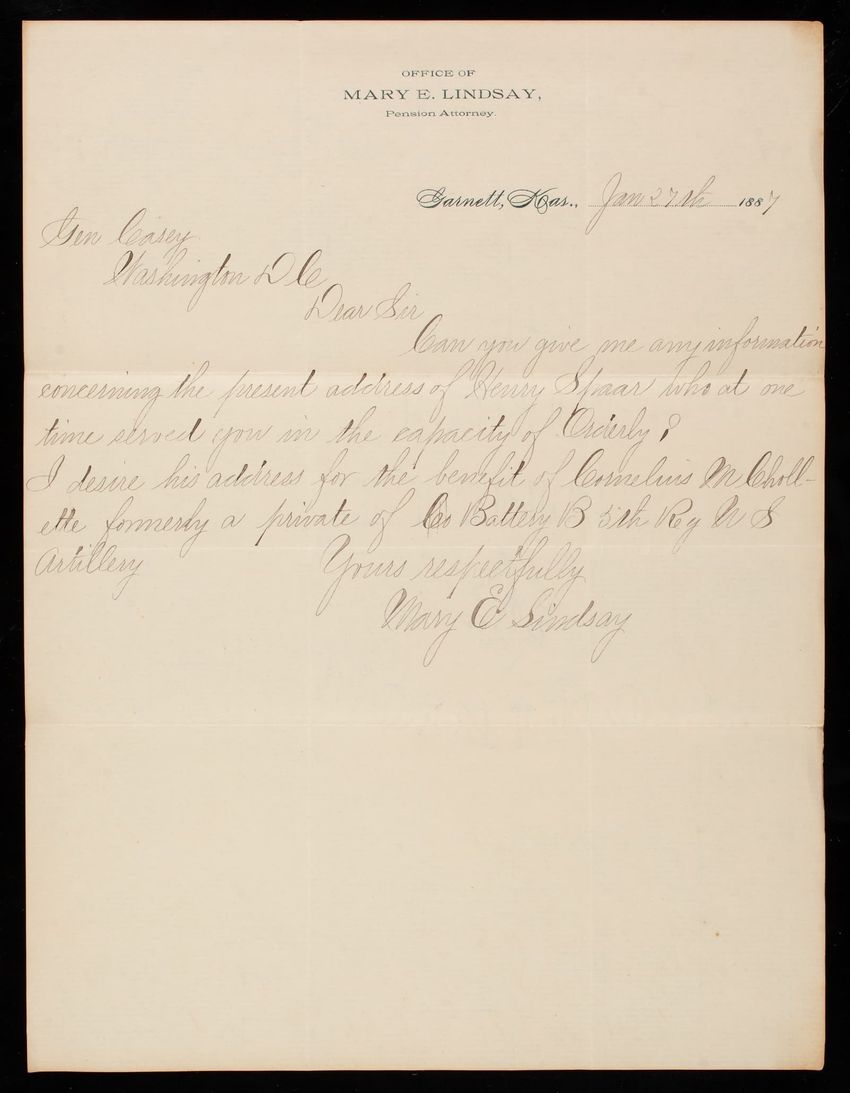 OFFICE OF
MARY E. LINDSAY,
Pension Attorney.
Garnett, Kas., Jan 27th 1887
Gen Casey
Washington D C
Dear Sir
Can you give me any information
concerning the present address of Henry Spaar who at one
time served you in the capacity of Orderly?
I desire his address for the benefit of Cornelius M Choll-
ette formerly a private of Co Battery B 5th Reg U S
Artillery
Yours respectfully
Mary E Lindsay